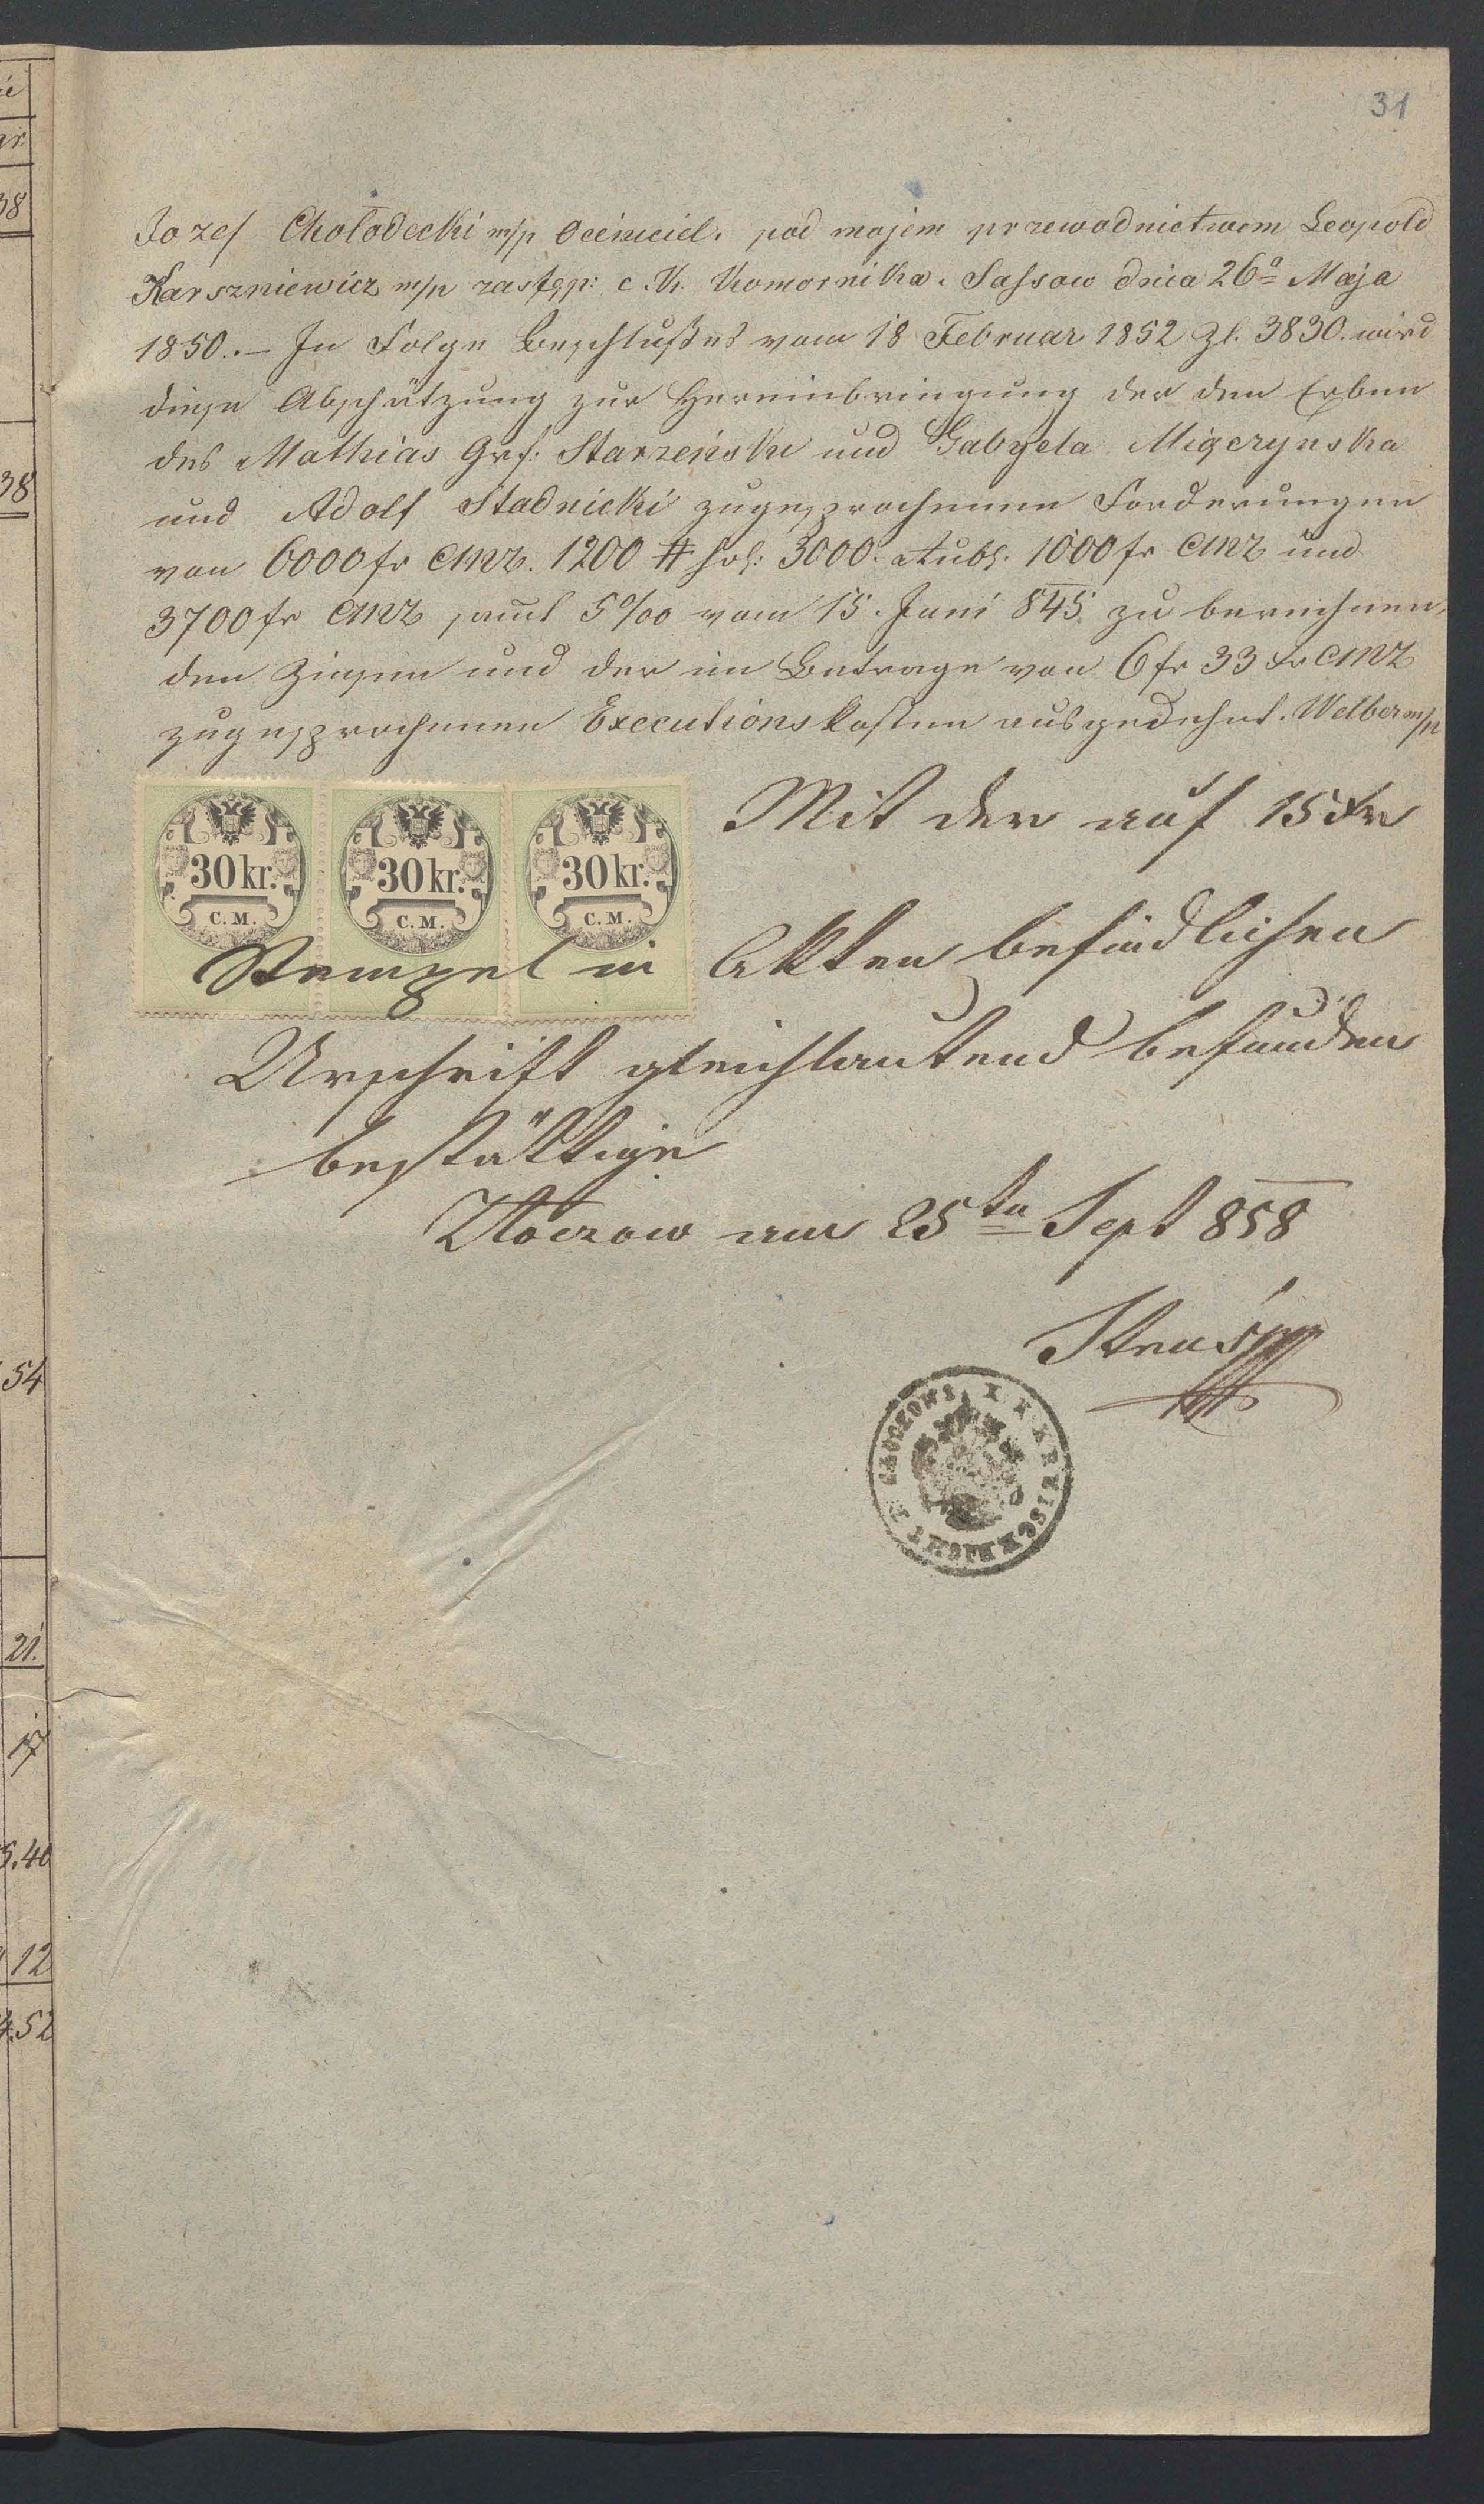 31
Jozef Chołodecki m/p Oceniciel. pod mojem przewodnictwem Leopold
Karszniewicz m/p zastęp: c. K. Komornika. Sassow dnia 26a Maja
1850.– In Folge Beschlußes vom 18 Februar 1852 Zl. 3830. wird
diese Abschätzung zur Hereinbringung der den Erben
des Mathias Grf: Starzeński und Gabryela
und Adolf Stadnicki zugesprochenen Forderungen
von 6000 fr CMz. 1200 # hol: 3000 Rubl. 1000 fr CMz und
3700 fr CMz samt 5% vom 15. Juni 845 zu berechnen,
den Zinsen und der im Betrage von 6 fr 33 xr CMz
zugesprochenen Executionskosten ausgedehnt. Welber m/p
30 kr. C. M.
30 kr. C. M.
30 kr. C. M.
Mit der auf 15 xr
Stempel in Akten befindlichen
Urschrift gleichlautend befunden
bestättige
Złoczow am 25ten Sept 858
38
38
54
21.
17
5.40
12
4.52